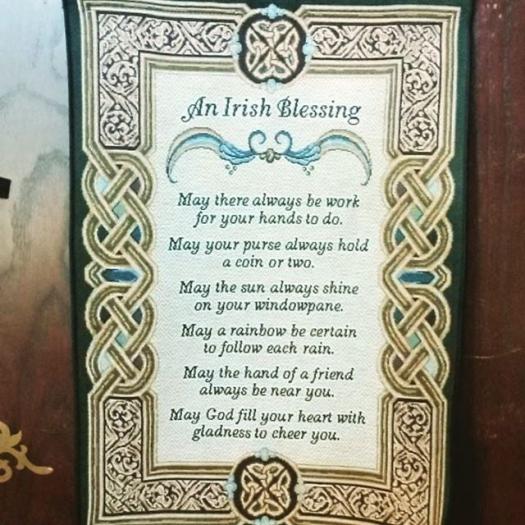 An Irish Blessing
May there always be work
for your hands to do.
May your purse always hold
a coin or two.
May the sun always shine
on your windowpane.
May a rainbow be certain
to follow each rain.
May the hand of a friend
always be near you.
May God fill your heart with
gladness to cheer you.